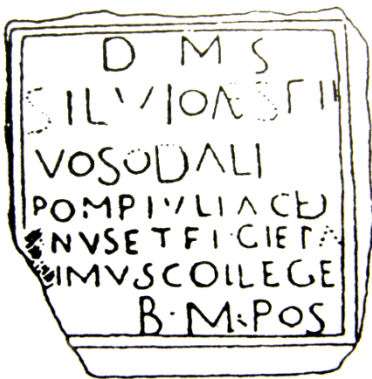 D M S
SILVIOAESTI
VOSODALI
POMPIVLIACED
NVSETFI·CIEPA
IMVSCOILEGE
B·M·POS